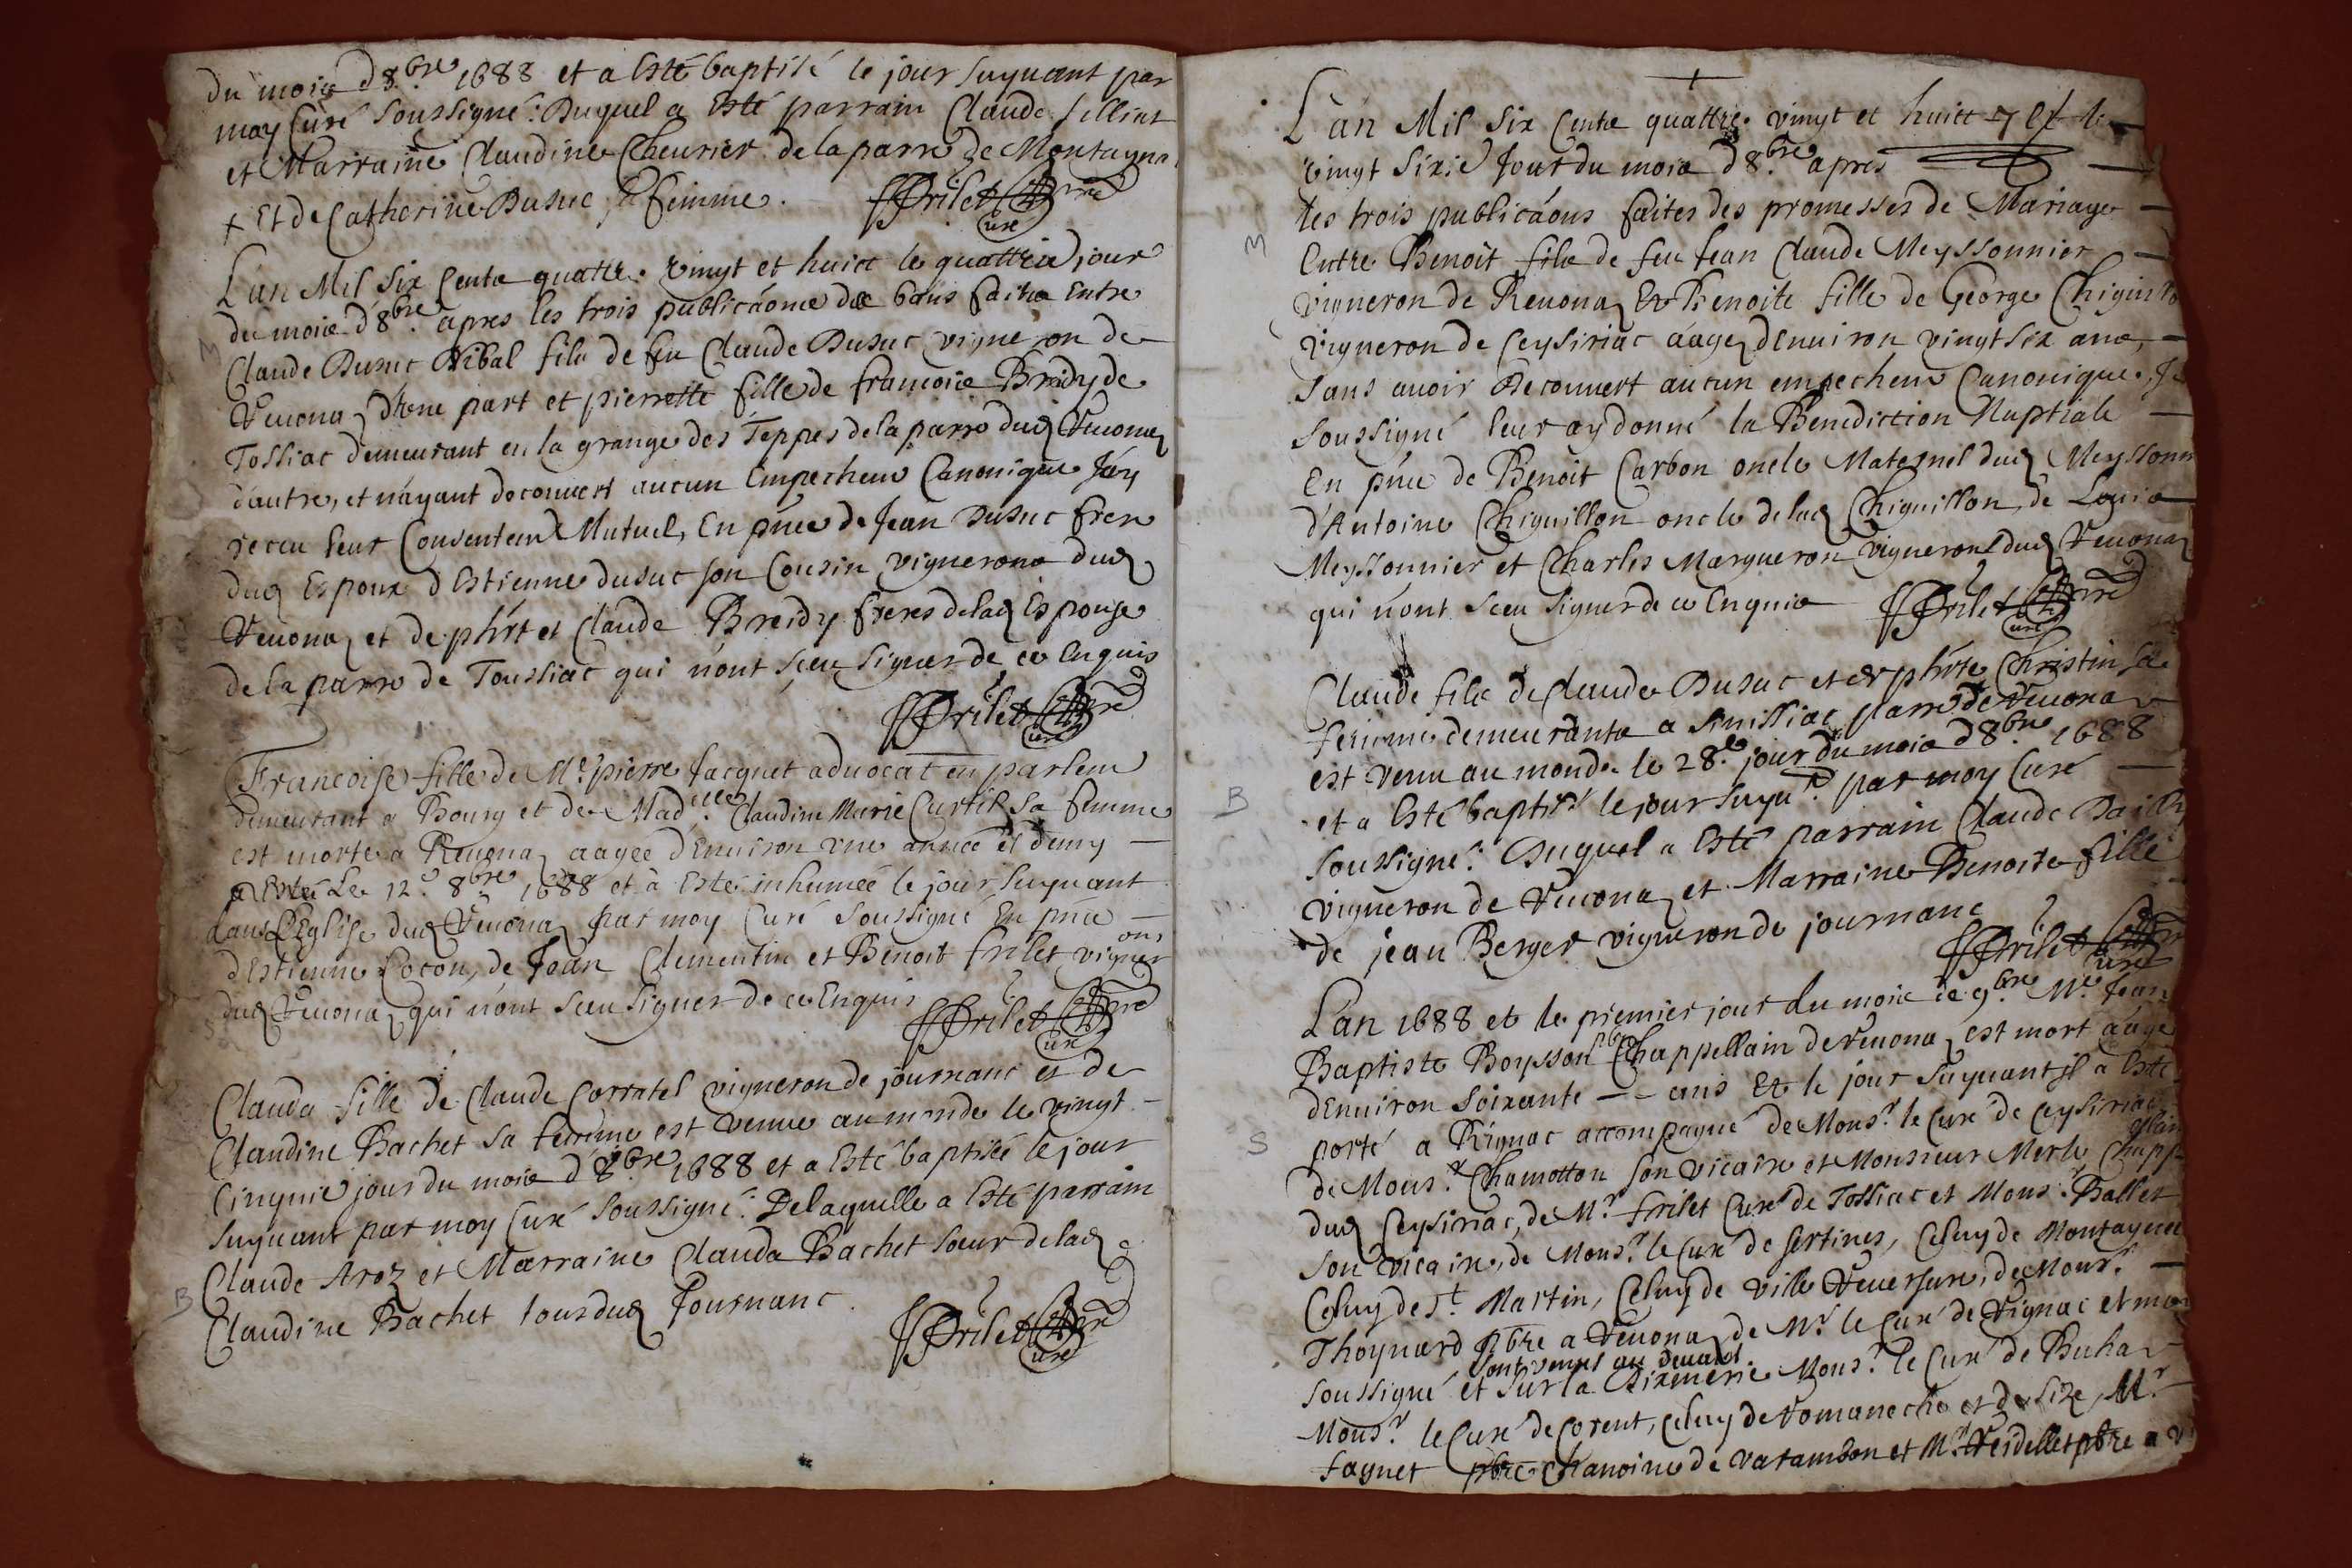 du mois d'8.bre 1688 et a Esté baptisé le jour suyuant par
moy Curé soussigné. Duquel a Esté parrain Claude
et Marraine Claudine Cheurier de la parre de Montagna
+ Et de Catherine Dusuc sa femme. FFrilet pbre
Curé
L'an Mil six Cents quattre vingt et huict le quattrie jour
du mois d'8bre. apres les trois publicãons des bans faites Entre
Claude Dusuc Ribal fils de feu Claude Dusuc vigneron de
Reuonaz d'une part et pierrette fille de francois Breidy de
Tossiac demeurant en la grange des Teppes de la parre dud Reuonaz
d'autre, et n'ayant decouuert aucun Empechem Canonique J'ay
receu leur Consentem Mutuel, En pñce de Jean Dusuc frere
dud Espoux d'Estienne dusuc son Cousin vignerons dud
Reuonaz et de phirt et Claude Breidy freres de lad Espouse
de la parre de Toussiac qui n'ont sceu signer de ce Enquis
FFrilet pbre
Curé
Francoise fille de Me pierre Jacquet aduocat en parlem
demeurant a Bourg et de Mad.lle Claudine Marie Curtil sa femme
est morte a Reuonaz aagée d'Enuiron vne année et demy
Le 12.e 8bre. 1688 et à Esté inhumeé le jour suyuant
dans l'Eglise dud Reuonaz par moy Curé soussigné En pñce
d'Estienne Cocon, de Jean Clementin et Benoit frilet vigner
ons
dud Reuonaz qui n'ont sceu signer de ce Enquis FFrilet pbre
Curé
S
Clauda fille de Claude Corratel vigneron de journanc et de
Claudine Bachet sa femme est venue au monde le vingt
Cinquie jour du mois d'8.bre 1688 et a Esté baptisée le jour
suyuant par moy Curé soussigné. De laquelle a Esté parrain
Claude Aroz et Marraine Clauda Bachet soeur de lad
B
Claudine Bachet tous dud Journanc. FFrilet pbre
Curé
+
L'an Mil six Cents quattre vingt et huict et le
vingt sixie Jour du mois d'8.bre apres
les trois publicãons faites des promesses de Mariage
M
Entre Benoit fils de feu Jean Claude Meyssonnier
vigneron de Reuonaz Et Benoite fille de George
vigneron de Ceysiriac aagez d'Enuiron vingt six ans,
sans auoir decouuert aucun empechem Canonique, Je
soussigné leur ay donné la Benediction Nuptiale
En pñce de Benoit Carbon oncle Maternel dud Meyssonn
d'Antoine Chiquillon oncle de lad Chiquillon, de Louis
Meyssonnier et Charles Margueron vignerons dud Reuonaz
qui n'ont sceu signer de ce Enquis FFrilet pbre
Curé
Claude fils de Claude Dusuc et de phirte Christin sa
femme demeurants a Simissiac parre de Reuonaz
est venu au monde le 28.e jour du mois d'8bre. 1688
B
et a Esté baptisé le jour suyut par moy Curé
soussigné. Duquel a Esté parrain Claude
vigneron de Reuonaz et Marraine Benoite fille
de jean Berger vigneron de journanc
FFrilet pbre
Curé
L'an 1688 et le premier jour du mois de 9.bre Mre Jean
Baptiste Boysson pbre Chappellain de Reuonaz est mort aagé
d'Enuiron soixante -- ans Et le jour suyuant il a Esté
S
porté a Rignac accompagné de Mons.r le Curé de Ceysiriac
de Mons.r Chamotton son vicaire et Monsieur Merle Chapp
ellain
dud Ceysiriac, de Mr. frilet Curé de Tossiac et Mons.r Ballet
son vicaire, de Mons.r le Curé de sertines, Celuy de Montagnat
Celuy de St Martin, Celuy de Ville Reuersure, de Mons.r
Thoynard pbre a Reuonaz de Mr. le Curé de Rignac et moy
sont venus au deuant
soussigné et sur la Mons.r le Curé de Buha
Mons.r le Curé de Corent, Celuy de Romaneche et de Size, Mr
faynet pbre Chanoine de varambon et Mr. pbre a